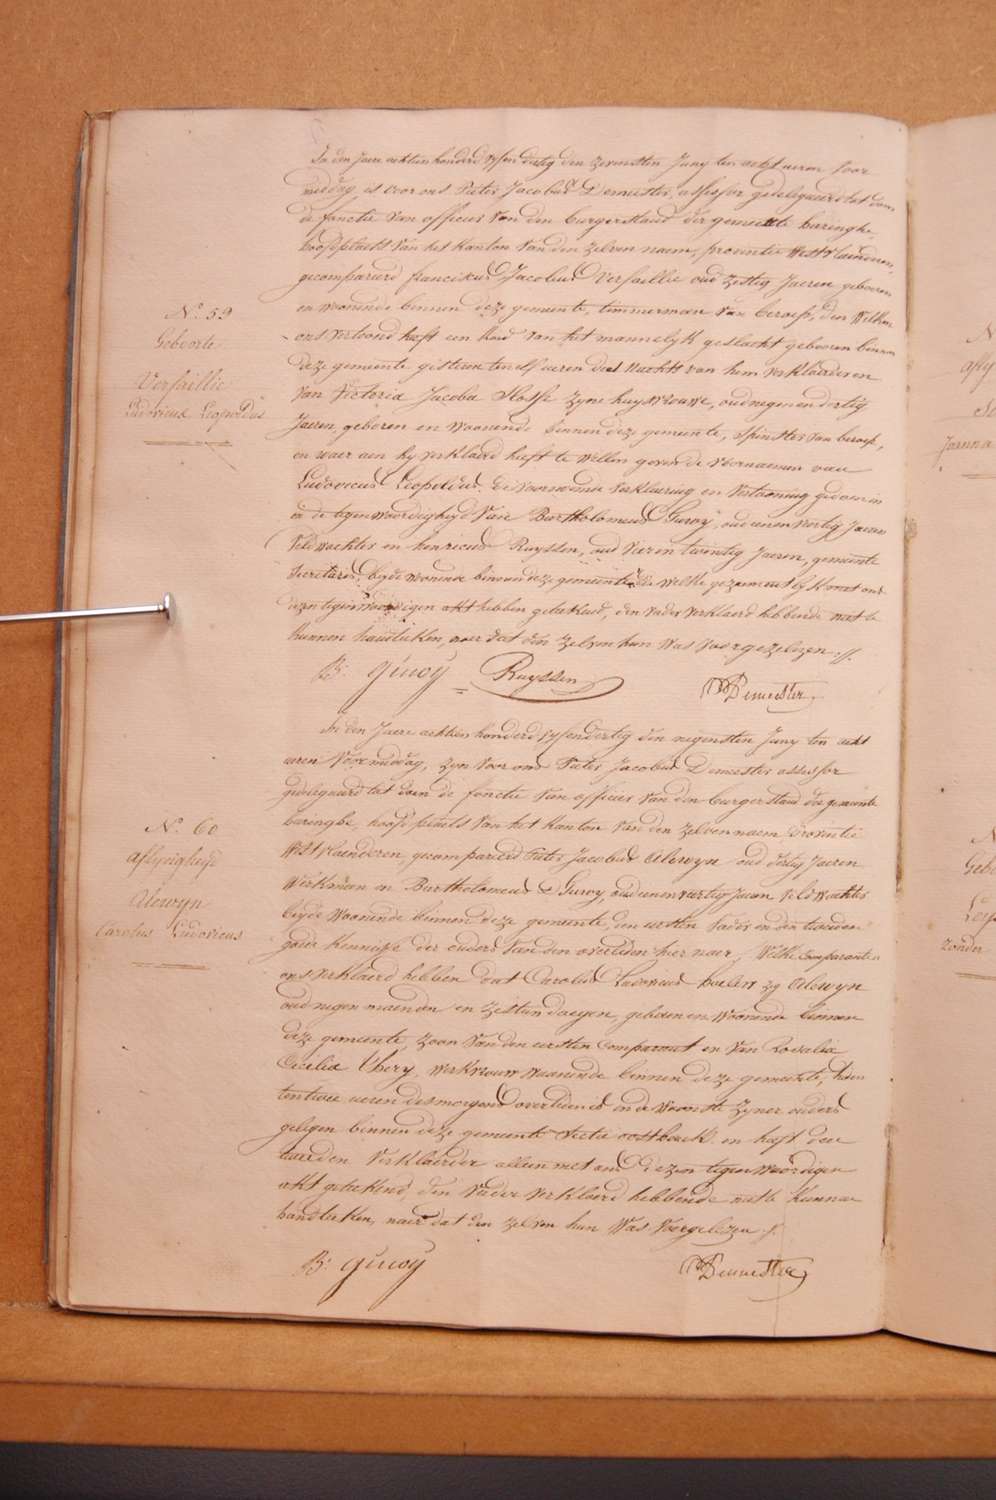 In den jaere achtien honderd vyfen dertig den zevensten Juny ten acht uren voor
middag is voor ons Pieter Jacobus Demester, assessor gedelegueerd tot doen
de fonctie van officier van den burgerstaud der gemeente haringhe
hoofdplaets van het kanton van den zelven naem, provintie West Vlaenderen,
gecompareerd franciskus Jacobus Versaillie oud zestig Jaeren geboren
en woonende binnen deze gemeente, timmerman van beroep, den welken
ons vertoond heeft een kind van het mannelyk geslacht gebooren binnen
deze gemeente gisteren ten elf ueren des nachts van hem verklaerder en
van Victoria Jacoba Hosse zyne huysvrouwe, oud negen en dertig
Jaeren, geboren en woonende binnen deze gemeente, spinster van beroep,
en waer aen hy verklaerd heeft te willen geven de voornaemen van
Ludovicus Leopoldus. de voornoemde verklaering en vertooning gedaen in
de tegenwoordigheyd van Bartholomeus Guwy, oud een en veertig Jaeren
Veldwachter en henricus Ruyssen, oud vier en twintig Jaeren, gemeente
Secretaris, beyde woonende binnen deze gemeente welke gezaementlyk met ons
dezen tegenwoordigen akt hebben geteekend, den vader verklaerd hebbende niet te
kunnen handteeken, naer dat den zelven hun was voorgezelezen ./.
B: guwy Ruyssen Demester
N.° 59
Geboorte
Versaillie
Ludovicus Leopoldus
In den Jaere achtien honderd vyfendertig den negensten Juny ten acht
uren voormiddag, zyn voor ons Pieter Jacobus Demester assessor
gedelegueerd tot doen de fonctie van officier van den burgerstaud der gemeente
haringhe, hoofdplaets van het kanton van den zelven naem provintie
West Vlaenderen, gecompareerd Pieter Jacobus Alewyn oud dertig Jaeren
Werkman en Bartholomeus Guwy, oud een en veertig Jaeren Veldwachter
beyde woonende binnen deze gemeente, den eersten vader en den tweeden
goede kennisse der ouders van den overleden hier naer, welke Comparanten
ons verklaerd hebben dat Carolus Ludovicus Alewyn
oud negen maenden en zestien daegen, geboren en woonende binnen
deze gemeente, zoon van den eersten Comparant en van Rosalia
Cecilia Thery, werkvrouw woonende binnen deze gemeente,
ten twee ueren des morgens overleden is in de woonste zyner ouders
gelegen binnen deze gemeente Sectie oosthoek en heeft den
tweeden verklaerder alleen met ons dezen tegenwoordigen
akt geteekend, den vader verklaerd hebbende niet te kunnen
handteeken, naer dat den zelven hun was voorgelezen ./.
B: guwy Demester
N.° 60
aflyvigheyd
Alewyn
Carolus Ludovicus